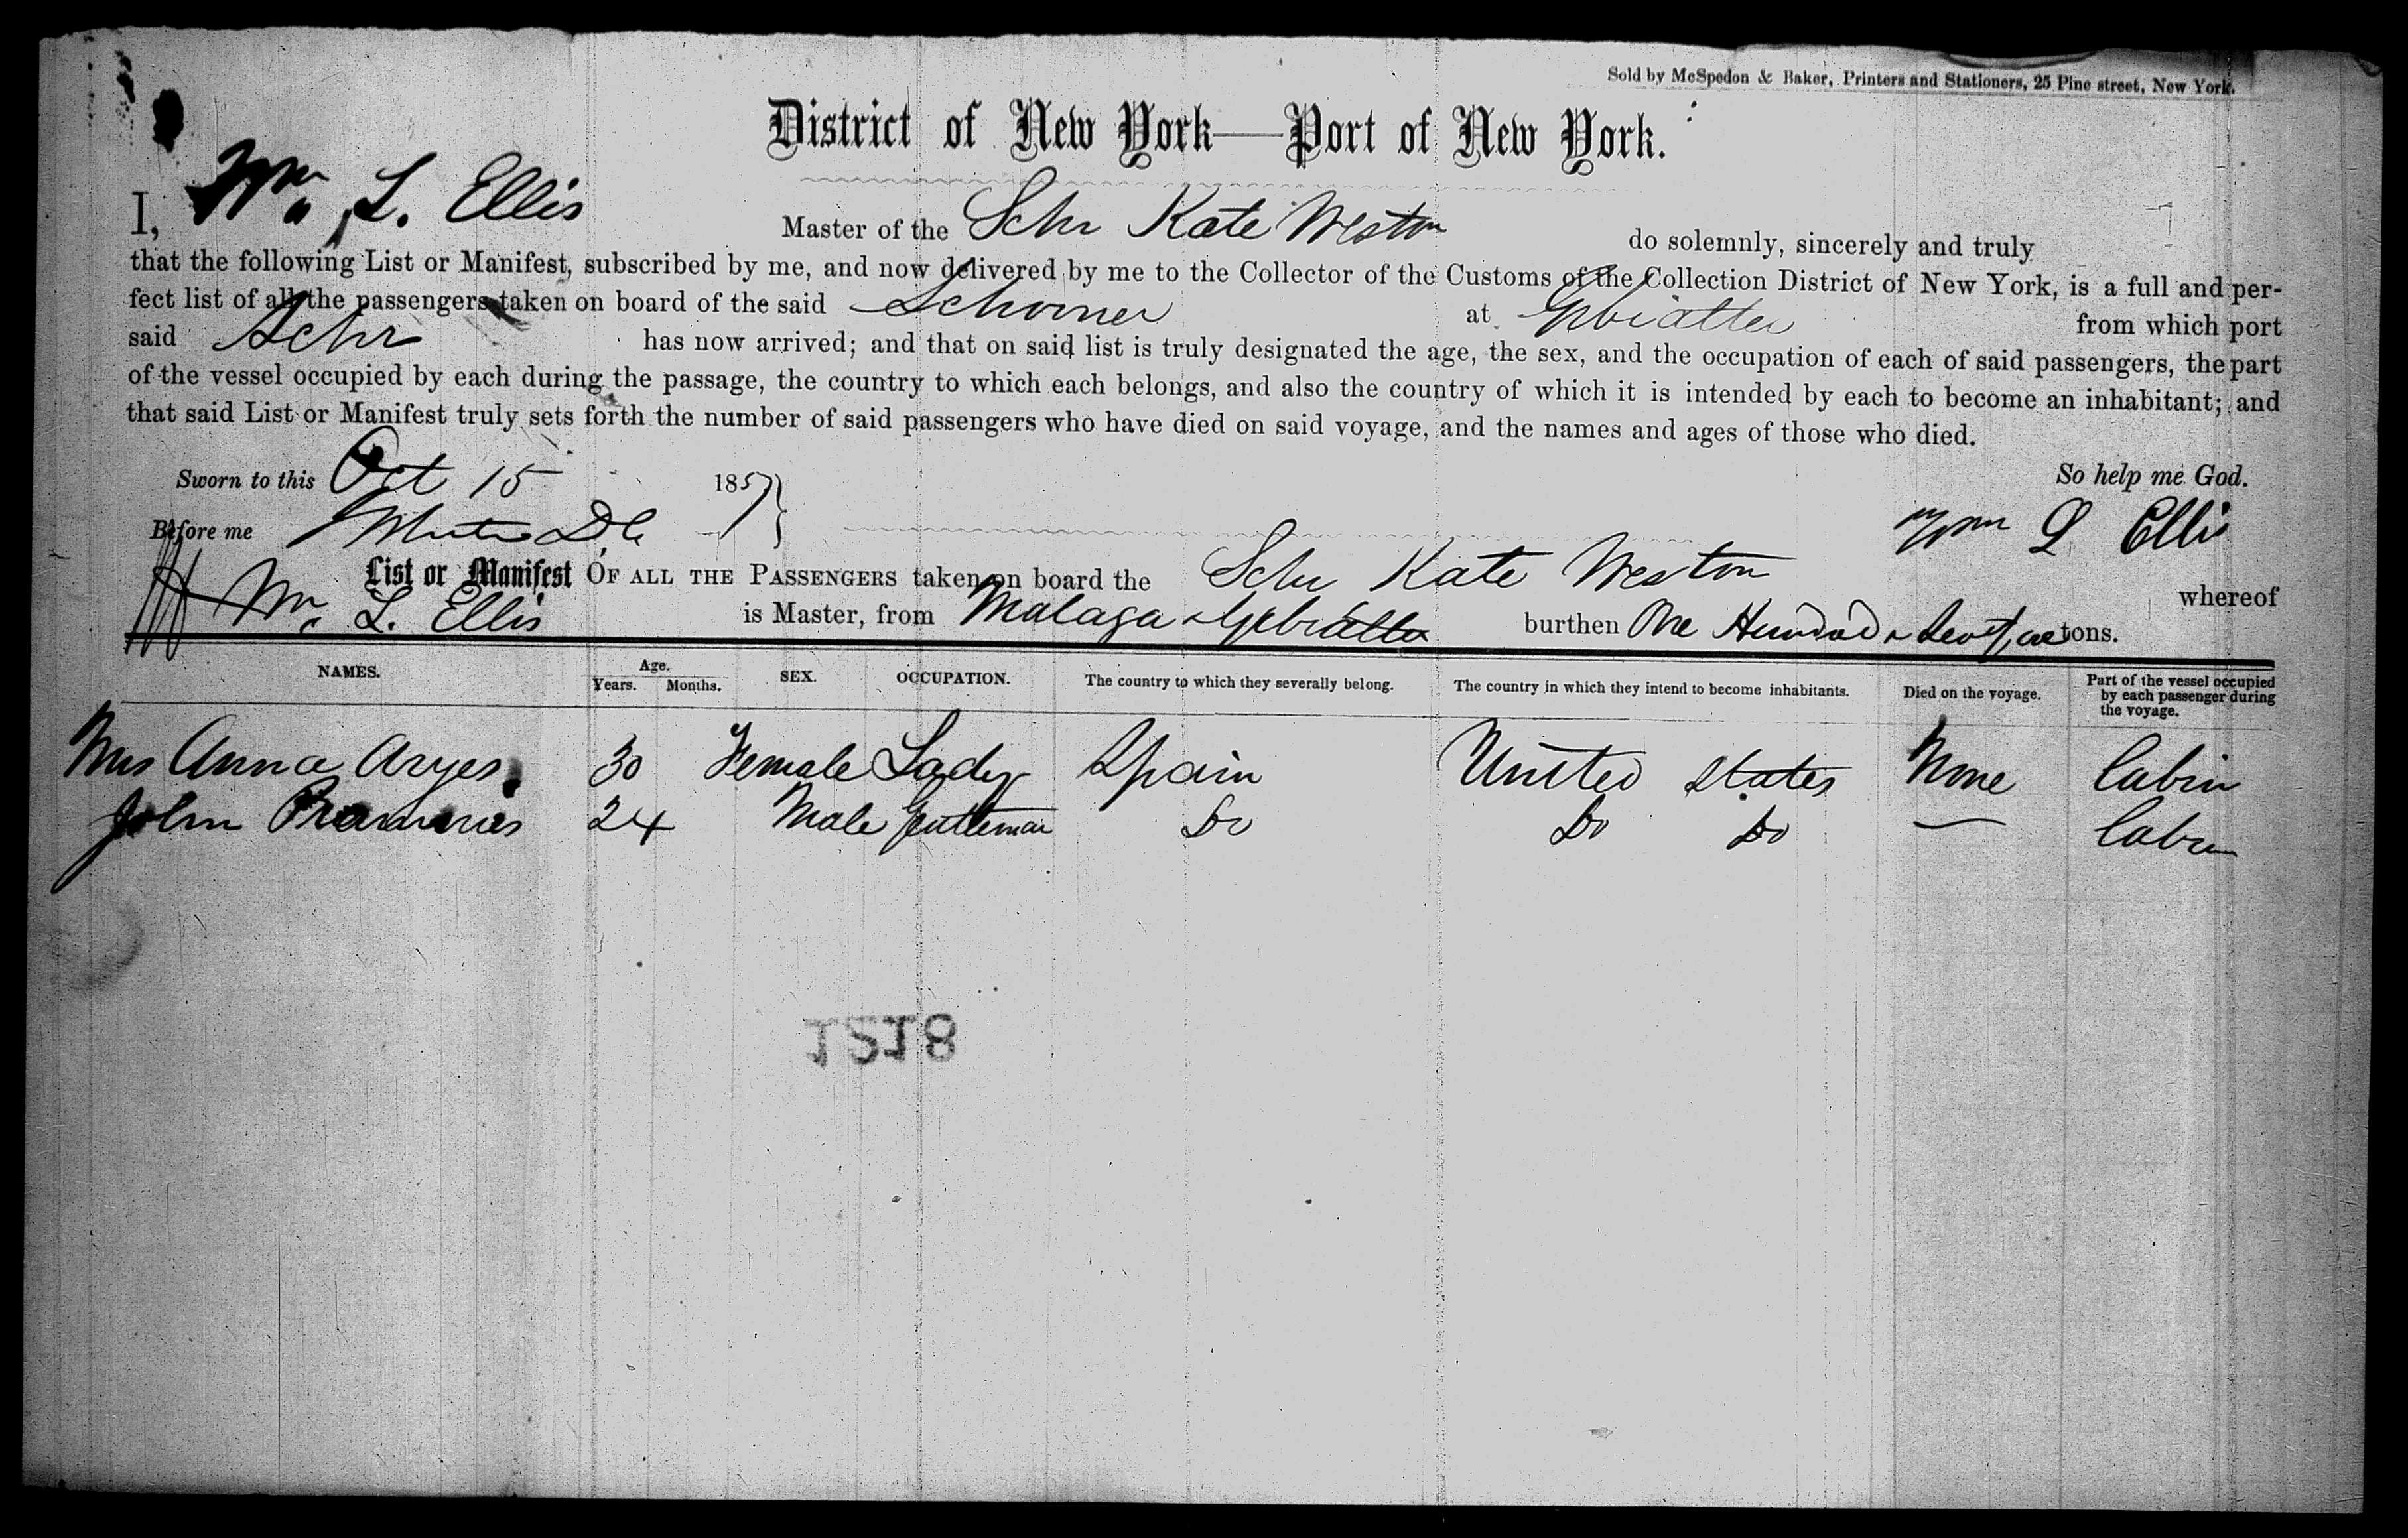 Sold by McSpedon & Baker, Printers and Stationers, 25 Pine street, New York.
District of New York—Port of New York.
I, Wm L. Ellis Master of the Schr Kate Weston do solemnly, sincerely and truly
that the following List or Manifest, subscribed by me, and now delivered by me to the Collector of the Customs of the Collection District of New York, is a full and per-
fect list of all the passengers taken on board of the said Schooner at Gibralter from which port
said Schr has now arrived; and that on said list is truly designated the age, the sex, and the occupation of each of said passengers, the part
of the vessel occupied by each during the passage, the country to which each belongs, and also the country of which it is intended by each to become an inhabitant; and
that said List or Manifest truly sets forth the number of said passengers who have died on said voyage, and the names and ages of those who died.
Sworn to this Oct 15 1857 So help me God.
Before me Wm L Ellis
List or Manifest OF ALL THE PASSENGERS taken on board the Schr Kate Weston whereof
Wm L. Ellis is Master, from Malaga & Gibralter burthen One Hundred & tons.
NAMES. Age. Years. Months. SEX. OCCUPATION. The country to which they severally belong. The country in which they intend to become inhabitants. Died on the voyage. Part of the vessel occupied by each passenger during the voyage.
Mrs Anna Aryes. 30 Female Lady Spain United States None Cabin
John 24 Male Gentleman Do Do Do — Cabin
1218